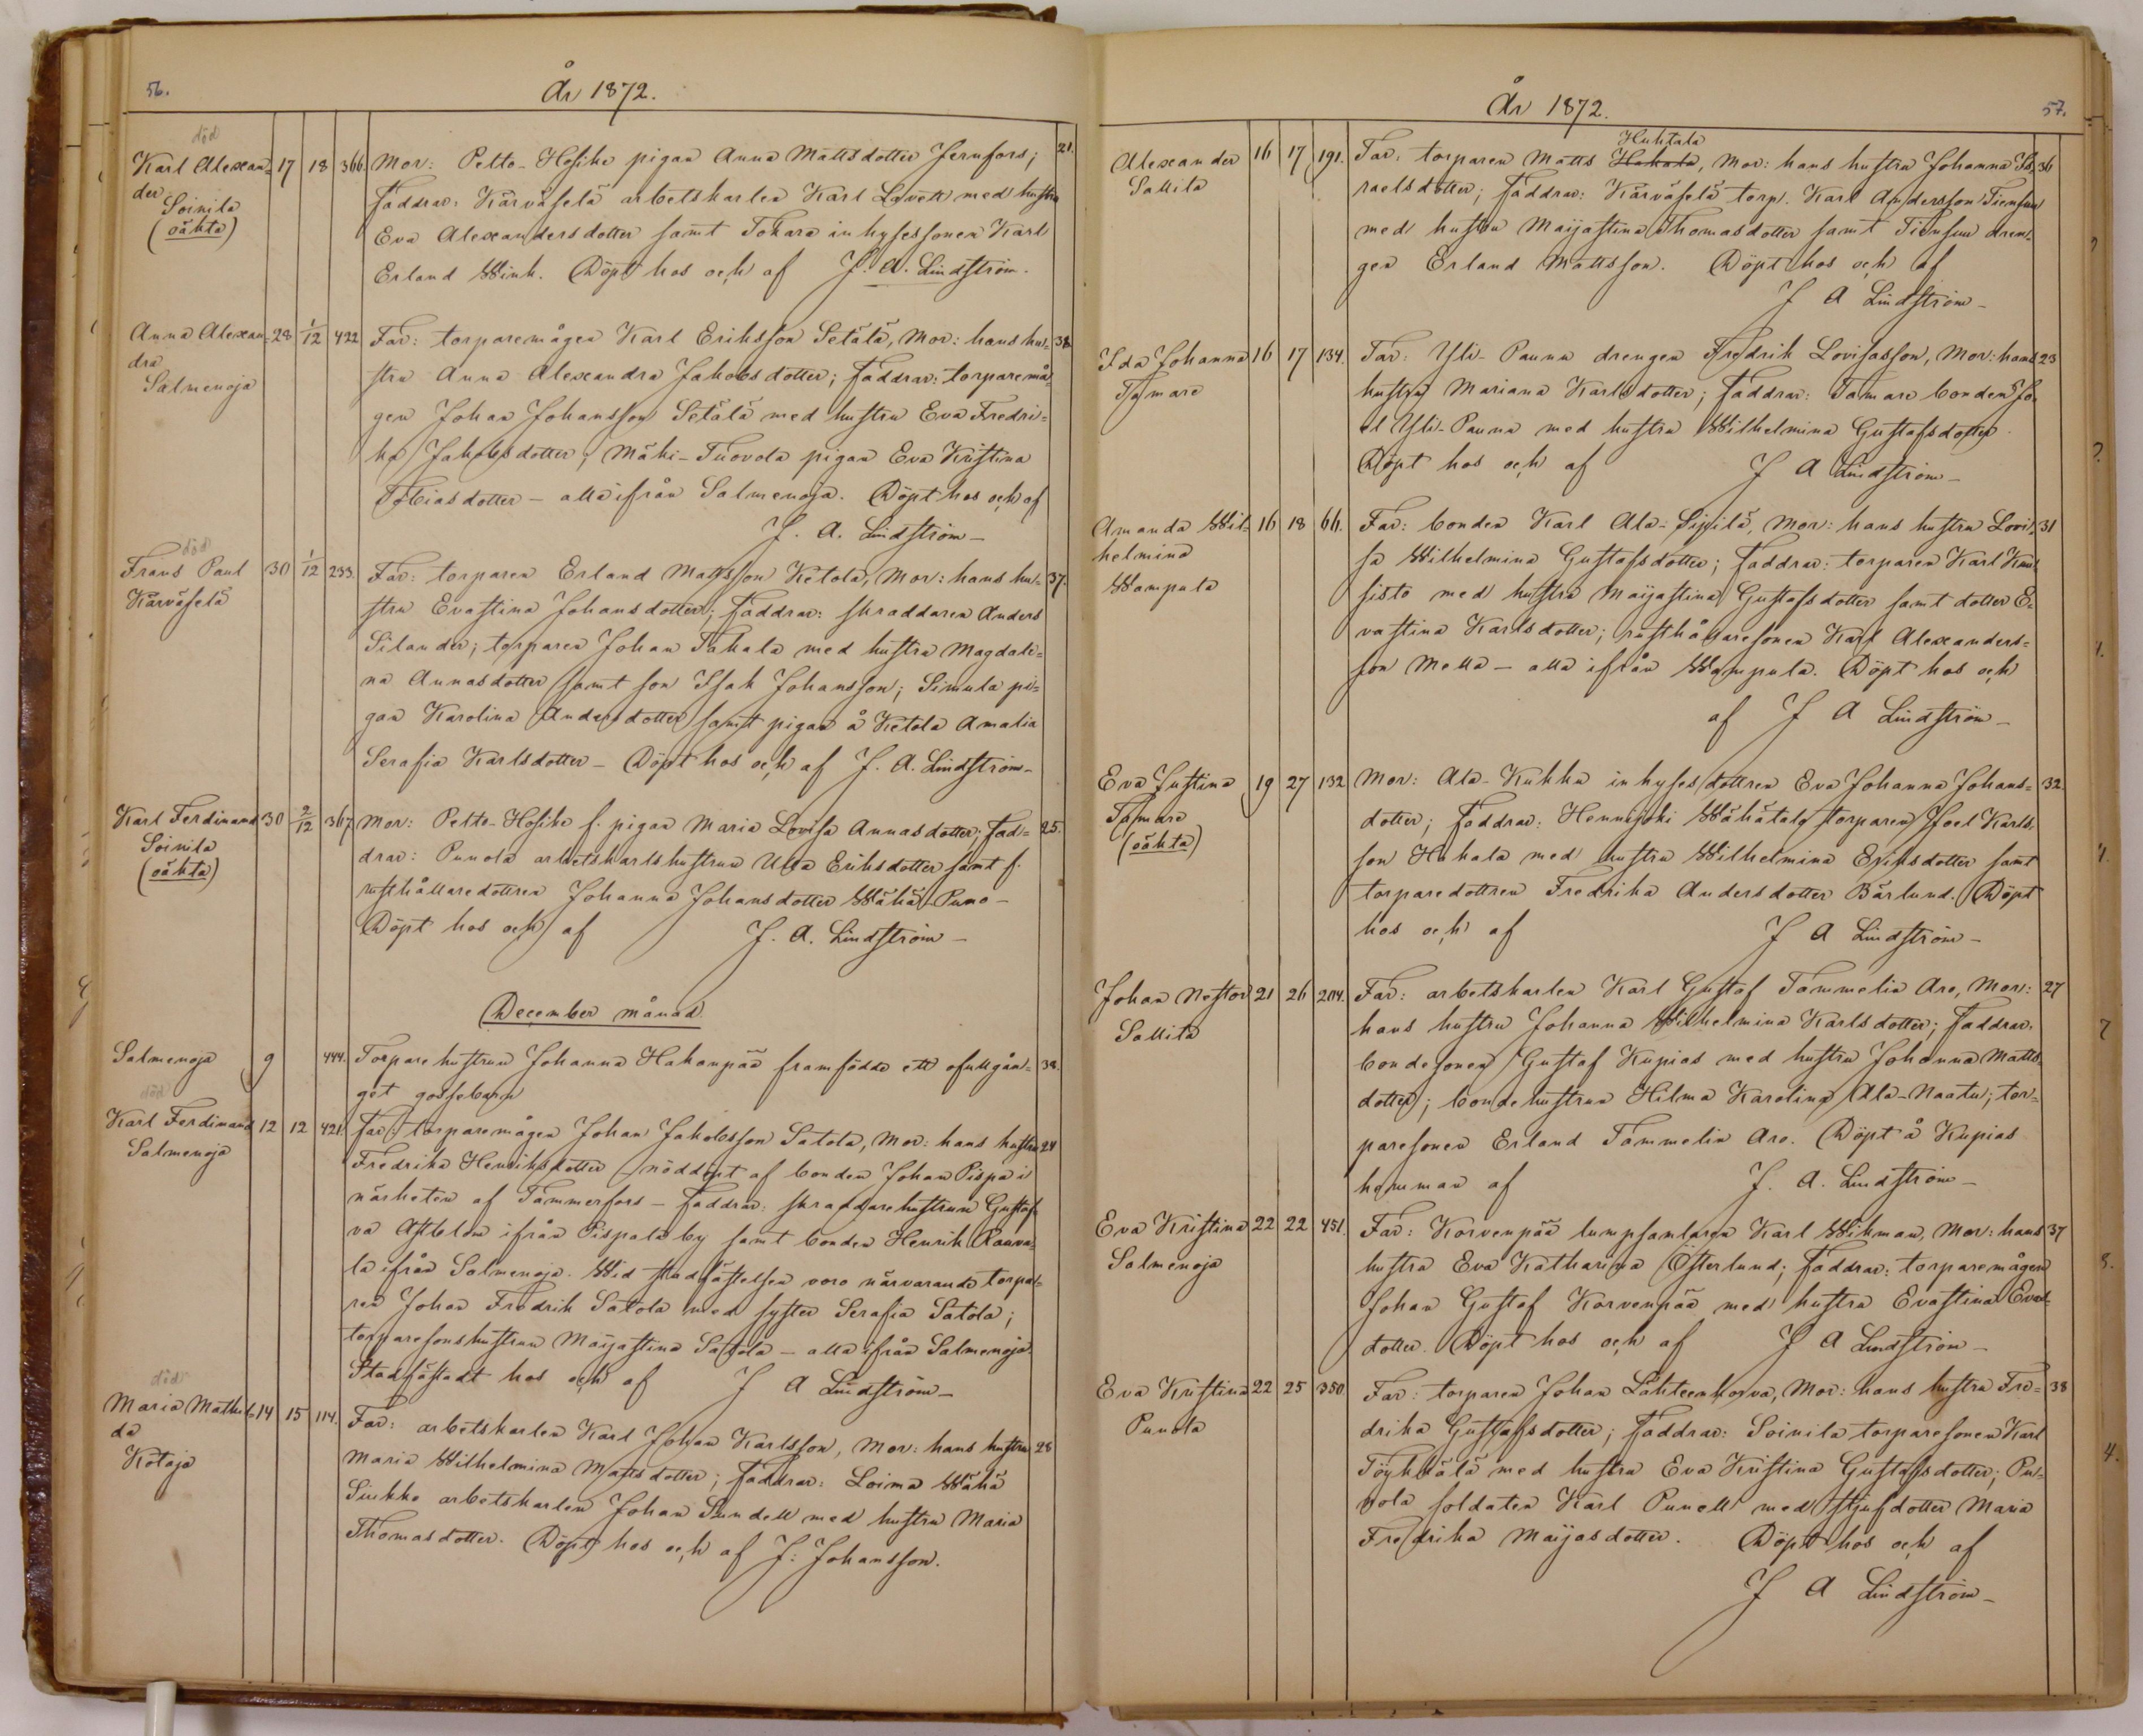 56.
År 1872.
död
Karl Alexan= 17 18 366. Mor: Petto-Hosike pigan Anna Mattsdotter Jernfors; 21.
der
Soinila
(oäkta)
Faddrar: Kärväselä arbetskarlen Karl Lovell med hustru
Eva Alexandersdotter samt Tokara inhysessonen Karl
Erland Wink. Döpt hos och af J. A. Lindström.
Anna Alexan= 28 1/12 422 Far: torparemågen Karl Eriksson Setälä, Mor: hans hu= 38
dra
Salmenoja
stru Anna Alexandra Jakobsdotter; Faddrar: torparemå=
gen Johan Johansson Setälä med hustru Eva Fredri=
ka Jakobsdotter; Mäki-Tuovola pigan Eva Kristina
Tobiasdotter – alla ifrån Salmenoja. Döpt hos och af
J. A. Lindström –
död
Frans Paul 30 1/12 233. Far: torparen Erland Mattsson Ketola, Mor: hans hu= 37.
Kärväselä
stru Evastina Johansdotter; Faddrar: skraddaren Anders
Silander; torparen Johan Takala med hustru Magdale=
na Annasdotter samt son Isak Johansson; Simula pi=
gan Karolina Andersdotter samt pigan å Ketola Amalia
Serafia Karlsdotter – Döpt hos och af J. A. Lindström –
Karl Ferdinand 30 2/12 367. Mor: Petto-Hosike f. pigan Maria Lovisa Annasdotter; Fad= 25.
Soinila
(oäkta)
drar: Punola arbetskarlshustrun Ulla Eriksdotter samt f.
rusthållaredottren Johanna Johansdotter Wähä-Puno –
Döpt hos och af J. A. Lindström –
December månad.
Salmenoja 9 444. Torparehustrun Johanna Hakanpää framfödde ett ofullgån= 38.
get gossebarn
död
Karl Ferdinand 12 12 421. Far: torparemågen Johan Jakobsson Satola, Mor: hans hustru 24
Salmenoja
Fredrika Henriksdotter – nöddöpt af bonden Johan Pispa i
närheten af Tammerfors – Faddrar: skraddarehustrun Gustaf=
va Astblom ifrån Pispala by samt bonden Henrik Rauva=
la ifrån Salmenoja. Wid stadfästelsen voro närvarande torpa=
ren Johan Fredrik Satola med syster Serafia Satola;
torparesonshustrun Maijastina Satola – alla ifrån Salmenoja.
Stadfästadt hos och af J A Lindström –
död
Maria Mathil= 14 15 114. Far: arbetskarlen Karl Johan Karlsson, Mor: hans hustru 28
da
Kotoja
Maria Wilhelmina Mattsdotter; Faddrar: Loima Wähä
Siukko arbetskarlen Johan Sundell med hustru Maria
Thomasdotter. Döpt hos och af J: Johansson.
År 1872.
57.
Huhtala
Alexander 16 17 191. Far: torparen Matts Hakala, Mor: hans hustru Johanna Is= 36
Sallila
raelsdotter; Faddrar: Kärväselä torp. Karl Andersson Tiensuu
med hustru Maijastina Thomasdotter samt Tiensuu dren=
gen Erland Mattsson. Döpt hos och af
J A Lindström –
Ida Johanna 16 17 134. Far: Yli-Paunu drengen Fredrik Lovisasson, Mor: hans 23
Tamare
hustru Mariana Karlsdotter; Faddrar: Tamare bonden Jo=
el Yli-Pauna med hustru Wilhelmina Gustafsdotter.
Döpt hos och af J A Lindström –
Amanda Wil= 16 18 66. Far: bonden Karl Ala-Sipilä, Mor: hans hustru Lovi= 31
helmina
Wampula
sa Wilhelmina Gustafsdotter; Faddrar: torparen Karl Kuu=
sisto med hustru Maijastina Gustafsdotter samt dotter E=
vastina Karlsdotter; rusthållaresonen Karl Alexanders=
son Mella – alla ifrån Wampula. Döpt hos och
af J A Lindström –
Eva Justina 19 27 132 Mor: Ala-Kukku inhysesdottren Eva Johanna Johans= 32.
Tamare
(oäkta)
dotter; Faddrar: Hennijoki Wähätalo torparen Joel Karls=
son Hakala med hustru Wilhelmina Eriksdotter samt
torparedottren Fredrika Andersdotter Bärlund. Döpt
hos och af J A Lindström –
Johan Nestor 21 26 204. Far: arbetskarlen Karl Gustaf Tammelin Aro, Mor: 27
Sallila
hans hustru Johanna Wilhelmina Karlsdotter; Faddrar:
bondesonen Gustaf Kupias med hustru Johanna Matts=
dotter; bondehustrun Hilma Karolina Ala-Naatu; tor=
paresonen Erland Tammelin Aro. Döpt å Kupias
hemman af J. A. Lindström –
Eva Kristina 22 22 451. Far: Korvenpää lumpsamlaren Karl Wikman, Mor: hans 37
Salmenoja
hustru Eva Katharina Österlund; Faddrar: torparemågen
Johan Gustaf Korvenpää med hustru Evastina Evas=
dotter. Döpt hos och af J A Lindström –
Eva Kristina 22 25 350. Far: torparen Johan Lähteenkorva, Mor: hans hustru Fre= 38
Punola
drika Gustafsdotter; Faddrar: Soinila torparesonen Karl
Töykkälä med hustru Eva Kristina Gustafsdotter; Pu=
nola soldaten Karl Punell med stjufdotter Maria
Fredrika Maijasdotter. Döpt hos och af
J A Lindström –